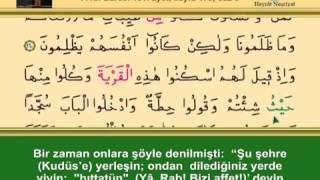 Hayrât Neşriyat
وَمَا ظَلَمُونَا وَلٰكِنْ كَانُٓوا اَنْفُسَهُمْ يَظْلِمُونَ
وَاِذْ قِيلَ لَهُمُ اسْكُنُوا هٰذِهِ الْقَرْيَةَ وَكُلُوا مِنْهَا
حَيْثُ شِئْتُمْ وَقُولُوا حِطَّةٌ وَادْخُلُوا الْبَابَ سُجَّدًا
Bir zaman onlara şöyle denilmişti: “Şu şehre
(Kudüs’e) yerleşin; ondan dilediğiniz yerde
yiyin; "hıttatün" (Yâ Rab! Bizi affet!)’ deyin